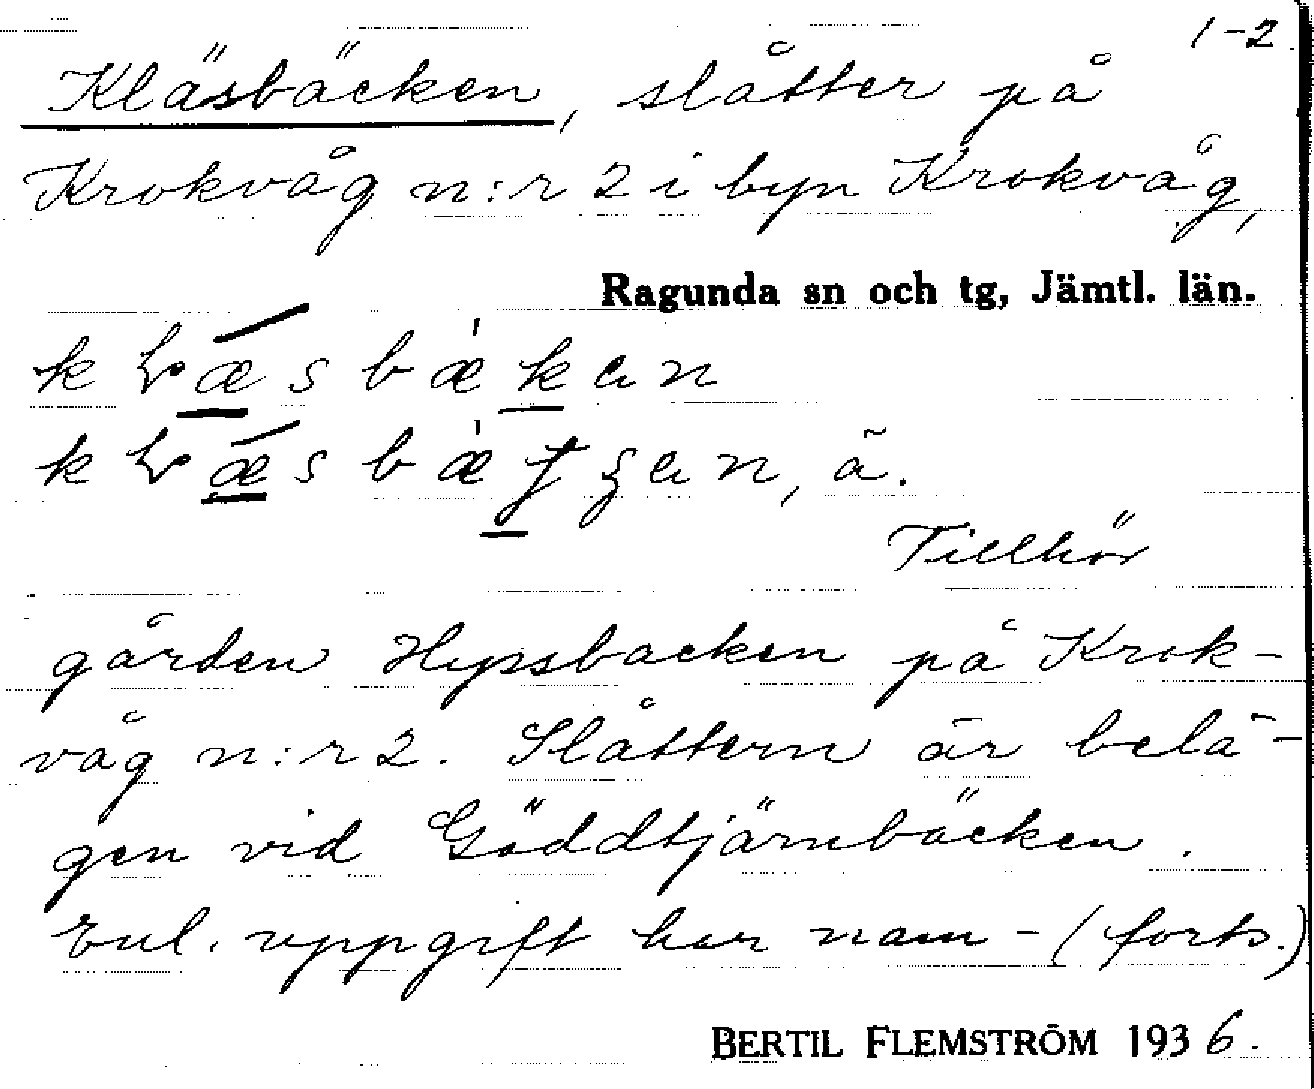 1-2
Kläsbäcken, slåtter på
Krokvåg n:r 2 i byn Krokvåg,
Ragunda sn och tg, Jämtl. län.
, ä.
Tillhör
gården Hypsbacken på Krok-
våg n:r 2. Slåttern är belä-
gen vid Gäddtjärnbäcken.
Enl. uppgift har nam- (forts.)
BERTIL FLEMSTRÖM 1936.